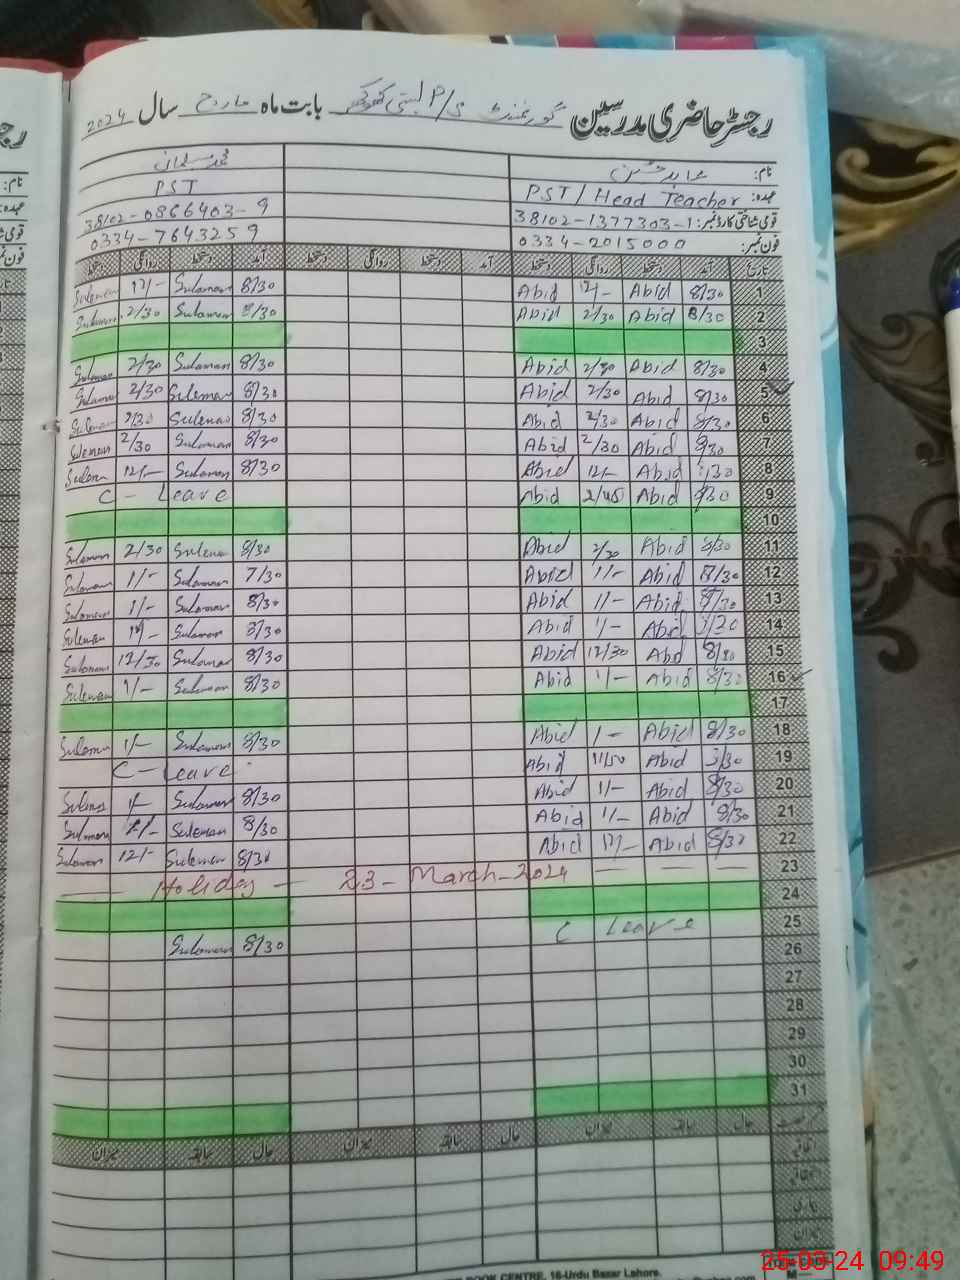 رجسٹر حاضری مدرسین گورنمنٹ P/S بستی کھوکھر بابت ماہ مارچ سال 2024
نام: عابد حسین محمد سلمان
عہدہ: PST / Head Teacher PST
قومی شناختی کارڈ نمبر: 38102-1377303-1 38102-0866403-9
فون نمبر: 0334-2015000 0334-7643259
تاریخ آمد دستخط روانگی دستخط آمد دستخط روانگی دستخط آمد دستخط روانگی دستخط
1 8/30 Abid 12/- Abid 8/30 Sulaman 12/- Suleman
2 8/30 Abid 2/30 Abid 8/30 Sulaman 2/30 Sulaman
3
4 8/30 Abid 2/30 Abid 8/30 Sulaman 2/30 Suleman
5 8/30 Abid 2/30 Abid 8/30 Suleman 2/30 Sulaman
6 8/30 Abid 2/30 Abid 8/30 Suleman 2/30 Suleman
7 8/30 Abid 2/30 Abid 8/30 Sulaman 2/30 Suleman
8 8/30 Abid 12/- Abid 8/30 Sulaman 12/- Suleman
9 8/30 Abid 2/45 Abid C - Leave
10
11 8/30 Abid 2/30 Abid 8/30 Suleman 2/30 Sulaman
12 8/30 Abid 1/- Abid 7/30 Sulaman 1/- Sulaman
13 8/30 Abid 1/- Abid 8/30 Sulaman 1/- Sulaman
14 8/30 Abid 1/- Abid 8/30 Sulaman 1/- Suleman
15 8/30 Abid 12/30 Abid 8/30 Sulaman 12/30 Sulaman
16 8/30 Abid 1/- Abid 8/30 Sulaman 1/- Suleman
17
18 8/30 Abid 1/- Abid 8/30 Sulaman 1/- Sulaman
19 8/30 Abid 11/50 Abid C - Leave
20 8/30 Abid 1/- Abid 8/30 Sulaman 1/- Suleman
21 8/30 Abid 1/- Abid 8/30 Suleman 1/- Sulman
22 8/30 Abid 12/- Abid 8/30 Suleman 12/- Sulaman
23 — Holiday — 23 - March - 2024 — — —
24
25 C Leave 8/30 Sulaman
26
27
28
29
30
31
حال سابقہ میزان حال سابقہ میزان حال سابقہ میزان
BOOK CENTRE, 16-Urdu Bazar Lahore.
25-03-24 09:49